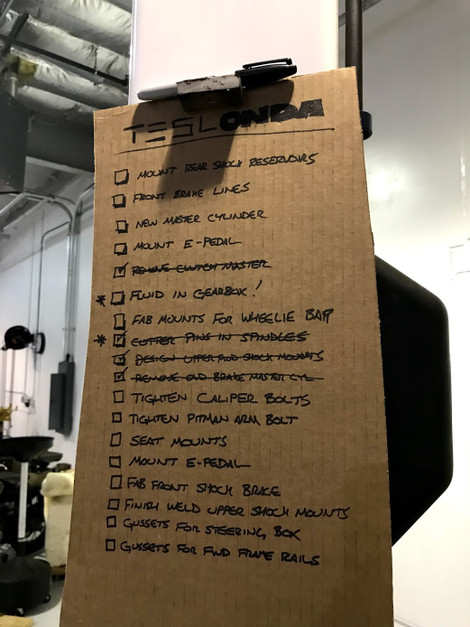 TESLONDA
MOUNT REAR SHOCK RESERVOIRS
FRONT BRAKE LINES
NEW MASTER CYLINDER
MOUNT E-PEDAL
REMOVE CLUTCH MASTER
* FLUID IN GEARBOX!
FAB MOUNTS FOR WHEELIE BAR
* COTTER PINS IN SPINDLES
DESIGN UPPER FWD SHOCK MOUNTS
REMOVE OLD BRAKE MASTER CYL
TIGHTEN CALIPER BOLTS
TIGHTEN PITMAN ARM BOLT
SEAT MOUNTS
MOUNT E-PEDAL
FAB FRONT SHOCK BRACE
FINISH WELD UPPER SHOCK MOUNTS
GUSSETS FOR STEERING BOX
GUSSETS FOR FWD FRAME RAILS